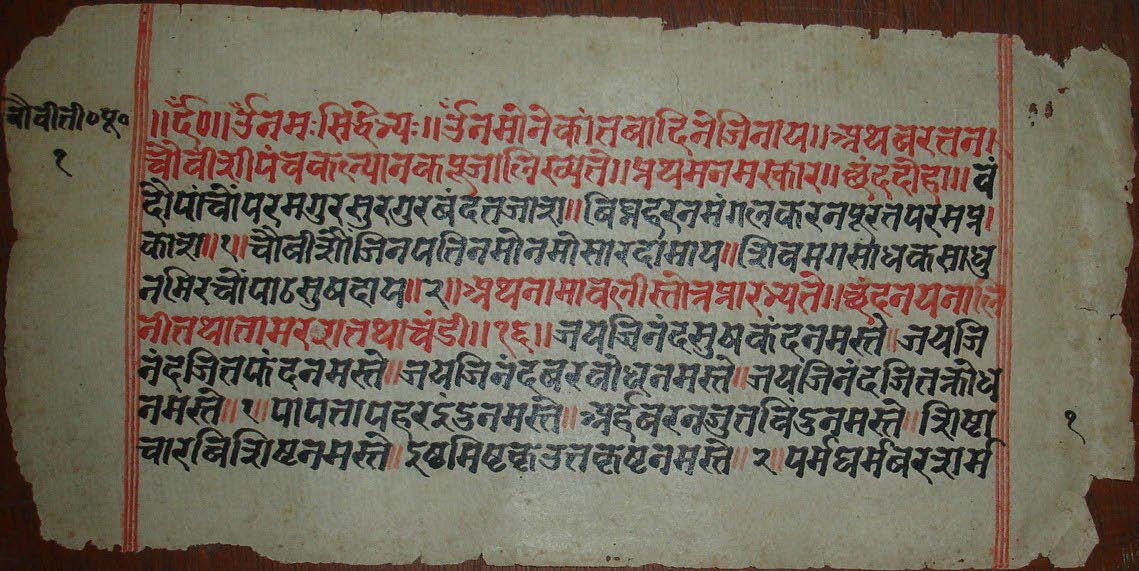 चौवीसी०पू०
१
॥ॐ०॥ॐनमःसिद्धेभ्यः॥ॐनमोनेकांतबादिनेजिनाय॥अथबरतन।
चौवीशीपंचकल्यानकपूजालिख्यते॥प्रथमनमस्कार॥छंददौहा॥वं
दौपांचौंपरमगुरसुरगुरबंदतजाश॥बिघ्नहरनमंगलकरनपूरतपरमप्र।
काश॥१॥चौवीशौंजिनपतिनमौनमौसारदामाय॥शिवमगसाधकसाधु
नमिरचौंपाठसुषदाय॥२॥अथनामावलीस्तोत्रप्रारभ्यते॥छंदनयनालि
नीतथातामरशतथाचंडी॥१६॥जयजिनंदसुषकंदनमस्ते॥जयजि
नंदजितफंदनमस्ते॥जयजिनंदबरबोधनमस्ते॥जयजिनंदजितक्रोध
नमस्ते॥१॥पापतापहरइंदुनमस्ते॥अर्हबरनजुतविंदुनमस्ते॥शिष्टा
चारबिशिष्टनमस्ते॥इष्टमिष्टउतकृष्टनमस्ते॥२॥पर्मधर्मबरशर्म
१